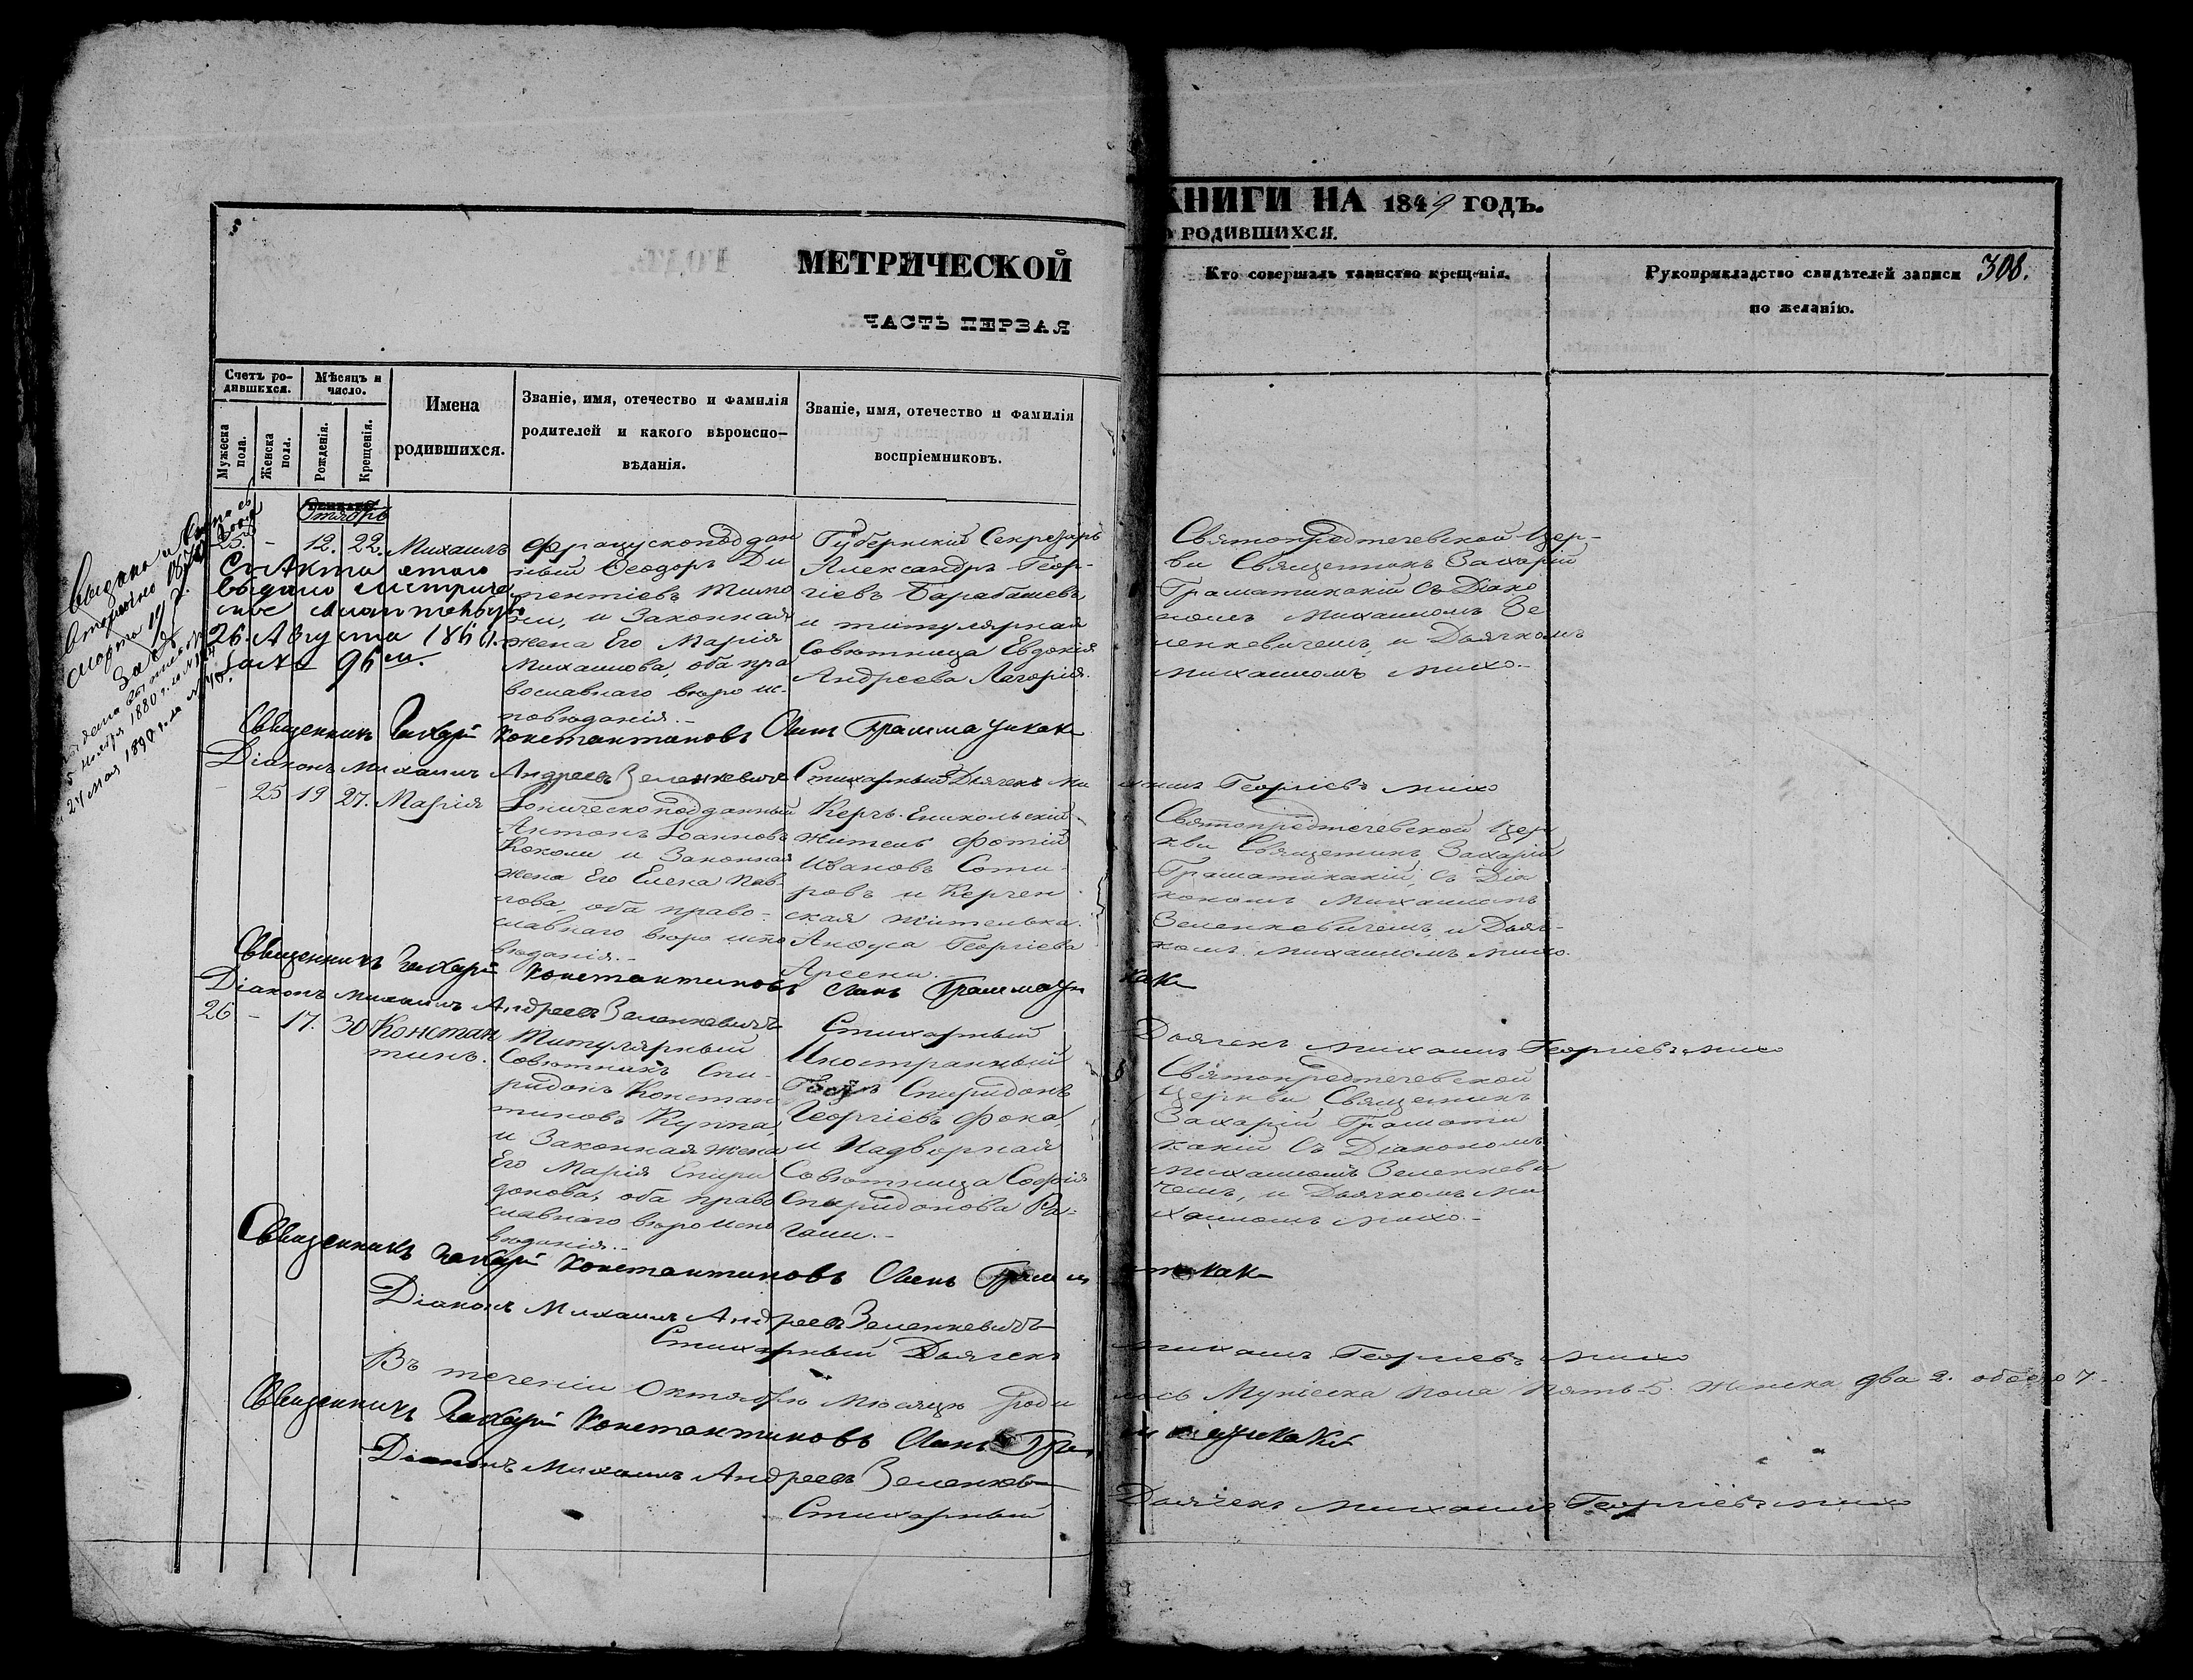 МЕТРИЧЕСКОЙ
КНИГИ НА 1849 ГОДЪ.
ЧАСТЬ ПЕРВАЯ
О РОДИВШИХСЯ.
308.
Счетъ ро-
дившихся.
Мужеска
пола.
Женска
пол.
Мѣсяцъ и
число.
Рожденія.
Крещенія.
Имена
родившихся.
Званіе, имя, отечество и фамилія
родителей и какого вѣроиспо-
вѣданія.
Званіе, имя, отечество и фамилія
воспріемниковъ.
Кто совершалъ таинство крещенія.
Рукоприкладство свидѣтелей записи
по желанію.
Октябрь
25 - 12. 22. Михаилъ
Съ Акта етого
выдано метриче
26. Августа
за № 96 м.
Француcкоподдан
ный Ѳеодоръ Ди
и Законная
жена Его Марія
Михаилова, оба пра
вославнаго вѣро ис-
повѣданія.-
Губернскій Секретарь
Александръ Геор-
гіевъ Барабашевъ
и титулярная
Совѣтница Евдокія
Андреева Лагорія.
Святопредтечевской Цер-
кви Священникъ Захарій
Граматикакій съ Діако
номъ Михаиломъ Зе
ленкевичемъ, и Дьячкомъ
Михаиломъ Михо.-
Священникъ Захарій Константиновъ Сынъ Грамматикаки
Діаконъ Михаилъ Андреевъ Зеленкевичъ Стихарный Дьячекъ Михаилъ Георгіевъ Михо
- 25 19 27. Марія
Іоническоподданный
Антонъ Іоанновъ
Коколи и Законная
жена Его Елена Пав-
лова, оба право-
славнаго вѣро испо
вѣданія.-
Керчь-Еникольскій
житель Фотій
Ивановъ Соти-
ровъ и Керчен
ская жителька
Анѳуса Георгіева
Арсени.
Святопредтечевской Цер
кви Священникъ Захарій
Граматикакій, съ Діа
кономъ Михаиломъ
Зеленкевичемъ, и Дьяч-
комъ Михаиломъ Михо.
Священникъ Захарій Константиновъ Сынъ Грамматикаки
Діаконъ Михаилъ Андреевъ Зеленкевичъ Стихарный
Дьячекъ Михаилъ Георгіевъ Михо
26 - 17. 30 Констан
тинъ.
Титулярный
Совѣтникъ Спи-
ридонъ Констан
тиновъ Куппа,
и Законная жена
Его Марія Спири
донова, оба право
славнаго вѣро испо
вѣданія.-
Иностранный
Гость Спиридонъ
Георгіевъ Фока,
и Надворная
Совѣтница Софія
Спиридонова Ра-
гали.-
Святопредтечевской
Церкви, Священникъ
Захарій Грамати
какій Съ Діакономъ
Михаиломъ Зеленкеви
чемъ, и Дьячкомъ Ми
хаиломъ Михо.-
Священникъ Захарій Константиновъ Сынъ Грамматикаки
Діаконъ Михаилъ Андреевъ Зеленкевичъ
Стихарный Дьячекъ Михаилъ Георгіевъ Михо
Въ теченіи Октябрѣ Мѣсяцѣ родилось Мужеска пола пять-5. Женска два 2. обоего 7.-
Священникъ Захарій Константиновъ Сынъ Грамматикаки
Діаконъ Михаилъ Андреевъ Зеленкев
Стихарный Дьячекъ Михаилъ Георгіевъ Михо